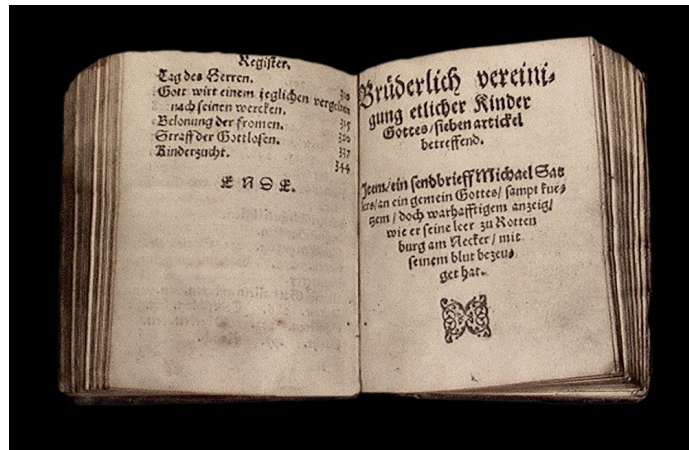 Register.
Tag des Herren.
Gott wirt einem jeglichen vergelten
nach seinen wercken.
Belonung der fromen. 315
Straff der Gottlosen.
Kinderzucht. 337
344
ENDE.
Brüderlich vereini-
gung etlicher Kinder
Gottes/sieben artickel
betreffend.
Item/ein sendbrieff Michael Sat
lers/an ein gemein Gottes/sampt kur-
tzem/doch warhafftigem anzeig/
wie er seine leer zu Rotten
burg am Necker/mit
seinem blut bezeu-
get hat.